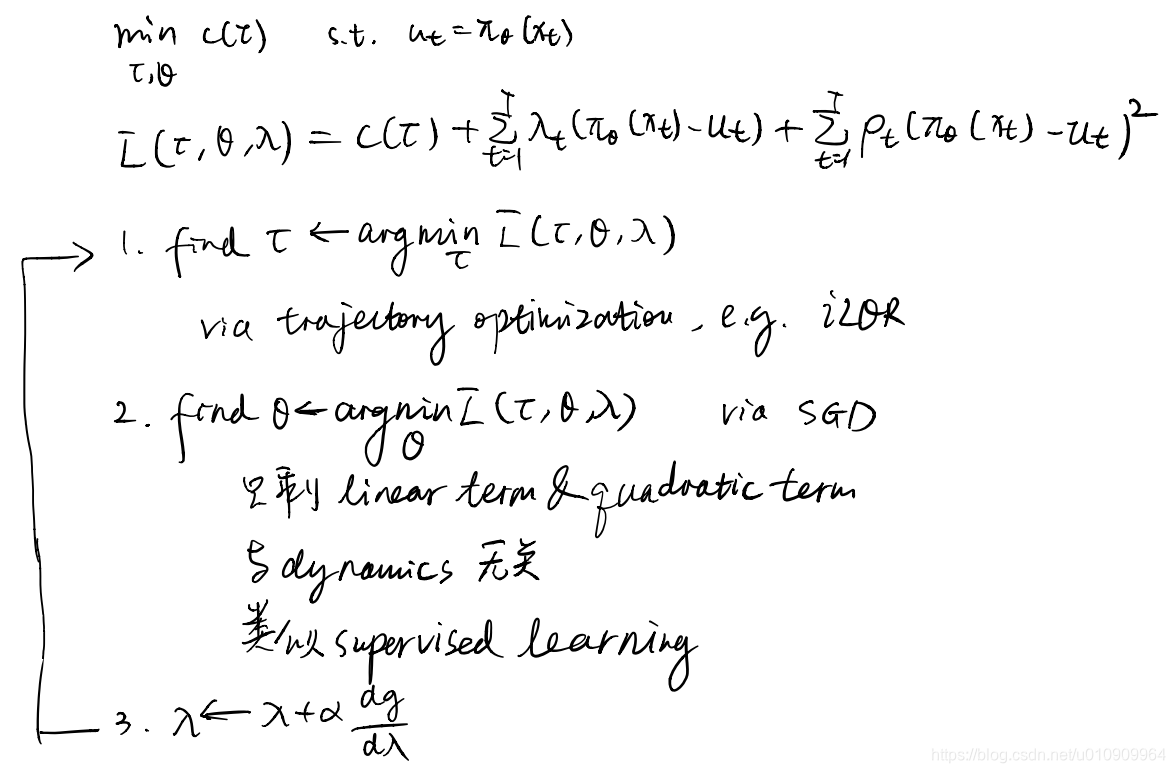 min c(τ) s.t. u_t = π_θ(x_t)
τ,θ
L̄(τ,θ,λ) = c(τ) + Σ_{t=1}^{T} λ_t(π_θ(x_t) - u_t) + Σ_{t=1}^{T} ρ_t(π_θ(x_t) - u_t)^2
1. find τ ← argmin_τ L̄(τ,θ,λ)
via trajectory optimization, e.g. iLQR
2. find θ ← argmin_θ L̄(τ,θ,λ) via SGD
只剩 linear term & quadratic term
与 dynamics 无关
类似 supervised learning
3. λ ← λ + α dg/dλ
https://blog.csdn.net/u010909964